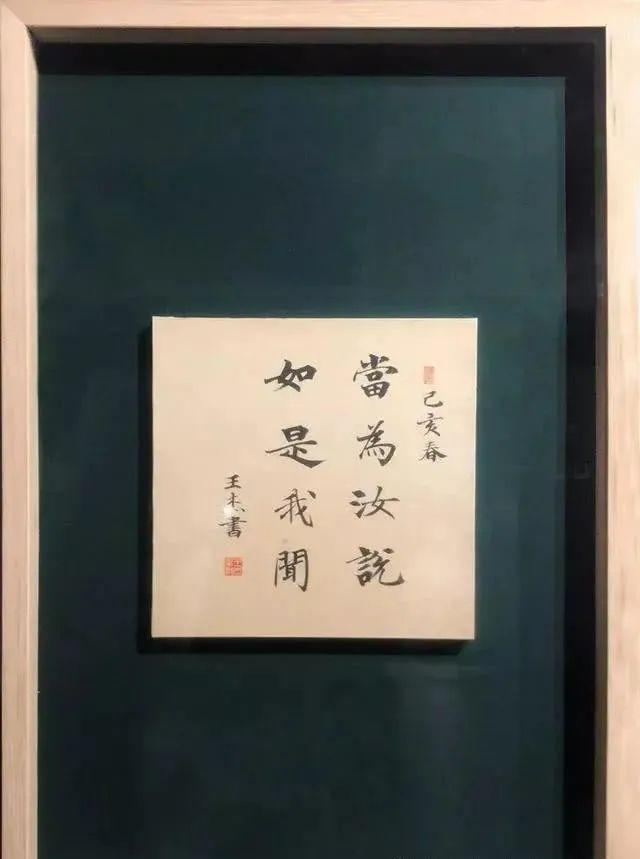 己亥春
當為汝説
如是我聞
王杰書